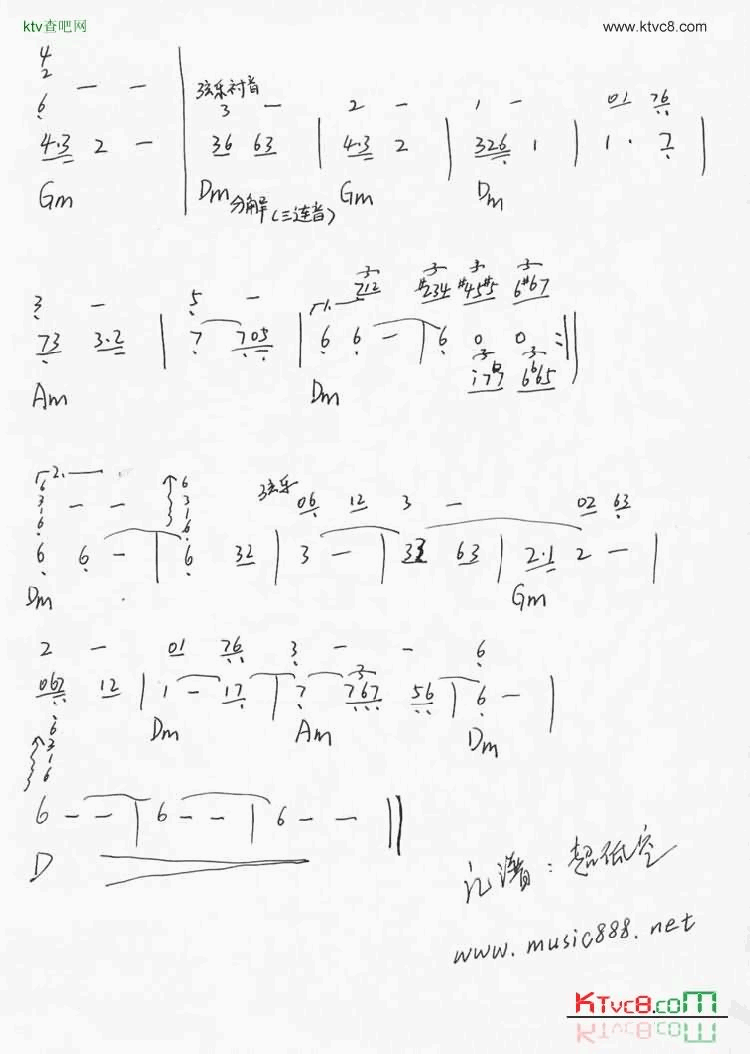 ktv查吧网 www.ktvc8.com
4
2 - -
6
4·3 2 -
Gm
弦乐衬音
3 - 2 - 1 - 01 76
36 63 | 4·3 2 | 326 1 | 1 · 7 |
Dm 分解(三连音) Gm Dm
3 - 5 - 1. 712 #234 #45#5 6#67
73 3·2 | 7 705 | 6 6 - | 6 0 0 :||
i7b7 6b65
Am Dm
2.
6
3 - -
1
6
6
3
1
6
弦乐 06 12 3 - 02 63
6 6 - | 6 32 | 3 - | 33 63 | 2·1 2 - |
Dm Gm
2 - 01 76 3 - - 6
067 12 | 1 - 17 | 7 767 56 | 6 - |
Dm Am Dm
6
3
1
6
6 - - | 6 - - | 6 - - ||
D
记谱：超低空
www.music888.net
KTVC8.COM